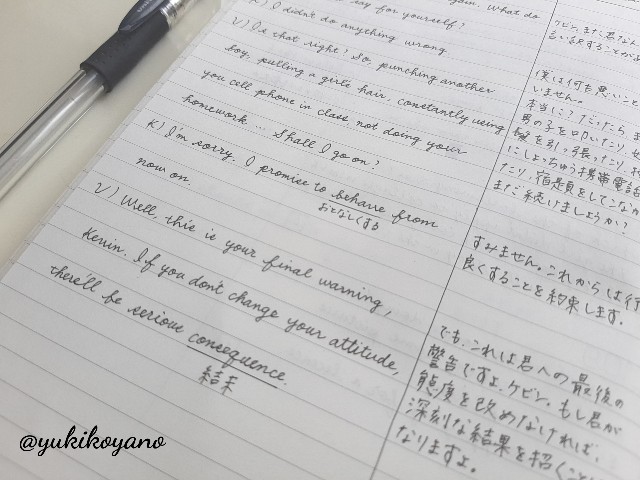 say for yourself?
again. What do
K) I didn't do anything wrong.
V) Is that right? So, punching another
boy, pulling a girls hair, constantly using
you cell phone in class not doing your
homework... Shall I go on?
K) I'm sorry. I promise to behave from
おとなしくする
now on.
V) Well, this is your final warning,
Kevin. If you don't change your attitude,
there'll be serious consequence.
結果
ケビン、また君なん
言い訳することがあ
僕は何も悪いこと
いません。
本当に?だったら、
男の子を叩いたり、
髪を引っ張ったり、
にしょっちゅう携帯電話
たり、宿題をしてこなか
まだ続けましょうか?
すみません。これからは行
良くすることを約束します。
でも、これは君への最後の
警告ですよ、ケビン。もし君が
態度を改めなければ、
深刻な結果を招くこと
なりますよ。
@yukikoyano